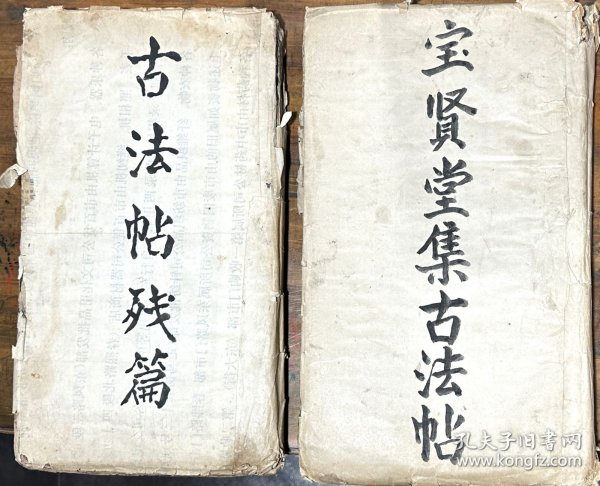 古法帖残篇
宝贤堂集古法帖
孔夫子旧书网
www.kongfz.com